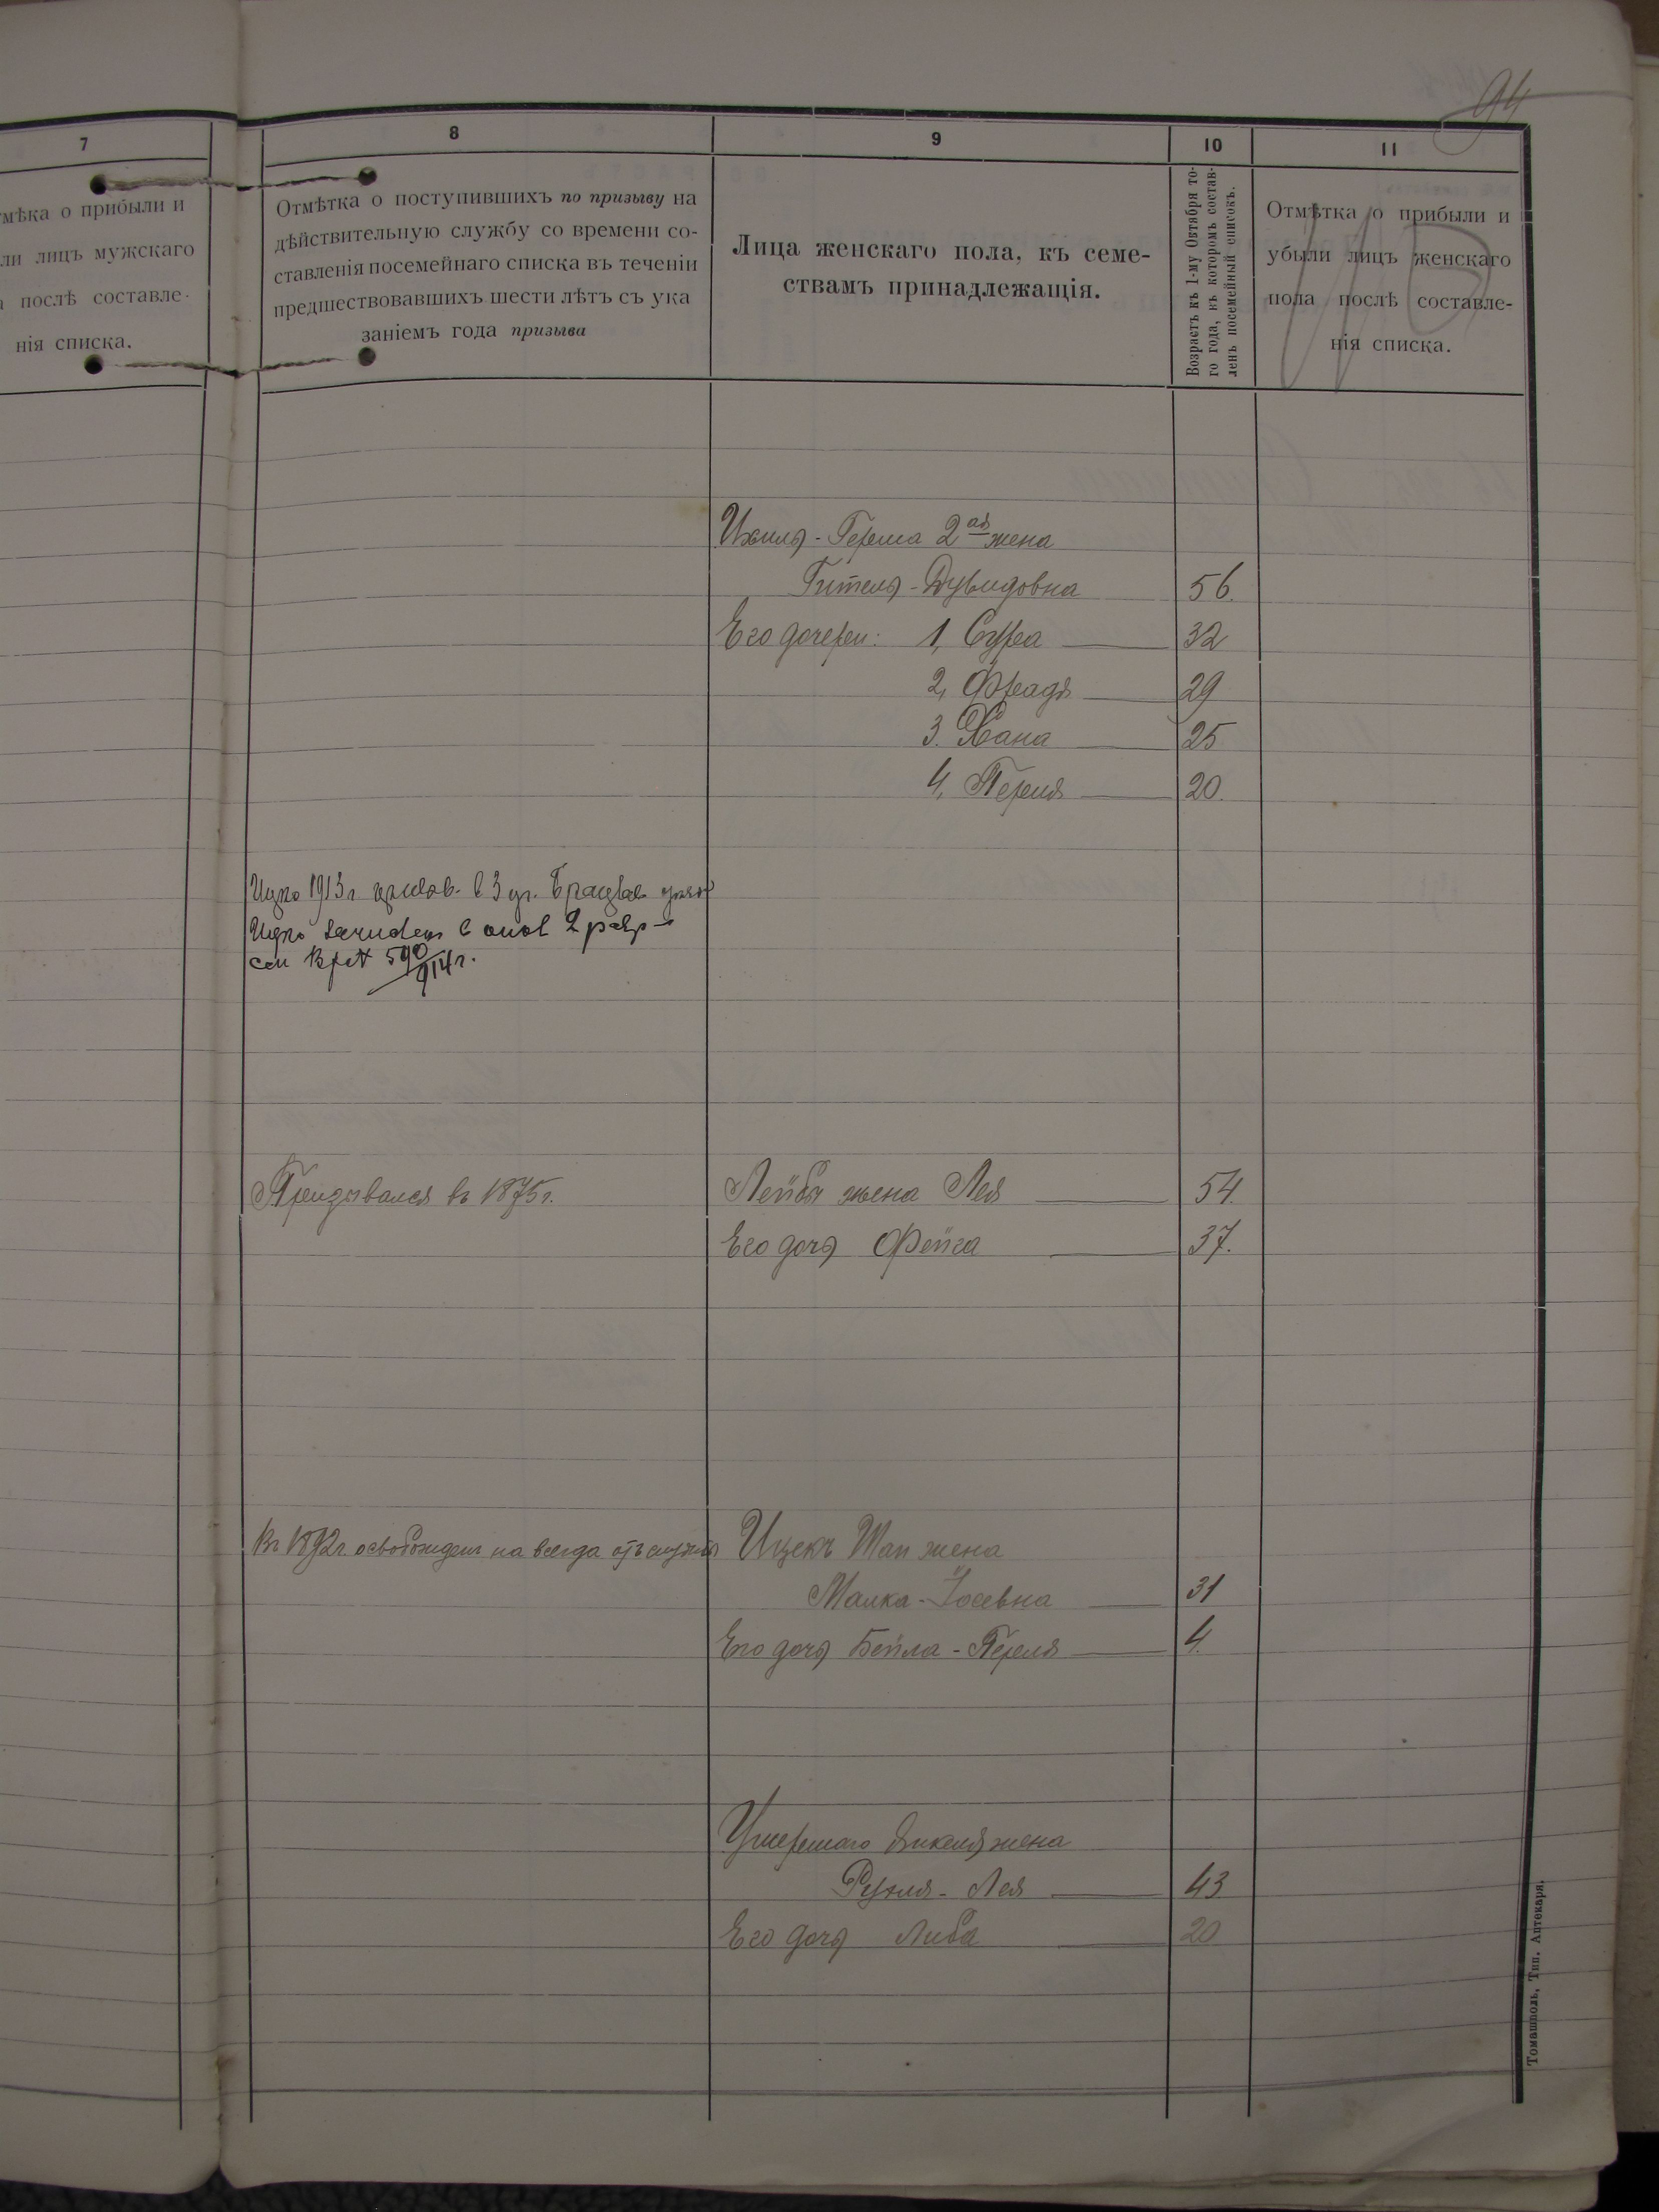 94
7
8
9
10
11
мѣка о прибыли и
ли лицъ мужскаго
а послѣ составле-
нія списка.
Отмѣтка о поступившихъ по призыву на
дѣйствительную службу со времени со-
ставленія посемейнаго списка въ теченіи
предшествовавшихъ шести лѣтъ съ ука
заніемъ года призыва
Лица женскаго пола, къ семе-
ствамъ принадлежащія.
Возрастъ къ 1-му Октября то-
го года, къ которомъ состав-
ленъ посемейный списокъ.
Отмѣтка о прибыли и
убыли лицъ женскаго
пола послѣ составле-
нія списка.
Ихиля-Герша 2ая жена
Гителя-Дувидовна 56.
Его дочери: 1, Сура 32
2, Фрадя 29
3. Хана 25
4, Перля 20.
1913 г. в 3 уч.
2 разр
590/914 г.
Призывался въ 1875 г.
Лейбы жена Лея 54.
Его дочь Фейга 37.
Въ 1892 г. освобожденъ на всегда отъ службы
Ицекъ Шап жена
Малка-Іосевна 31
Его дочь Бейла-Перля 4.
Умершаго жена
Рухля-Лея 43
Его дочь Либа 20
Томашполь, Тип. Аптекаря.